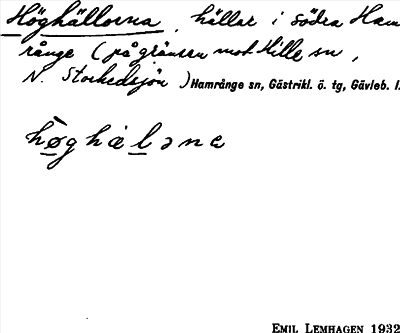 Höghällorna, hällar i södra Ham
rånge (på gränsen mot Hille sn,
N. Storhedsjön) Hamrånge sn, Gästrikl. ö. tg, Gävleb. l.
høghälɔna
EMIL LEMHAGEN 1932